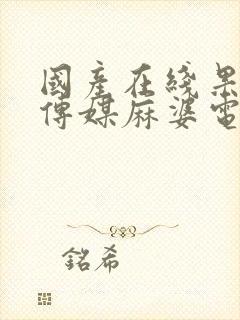 國產在綫果
傳媒麻婆電
銘希